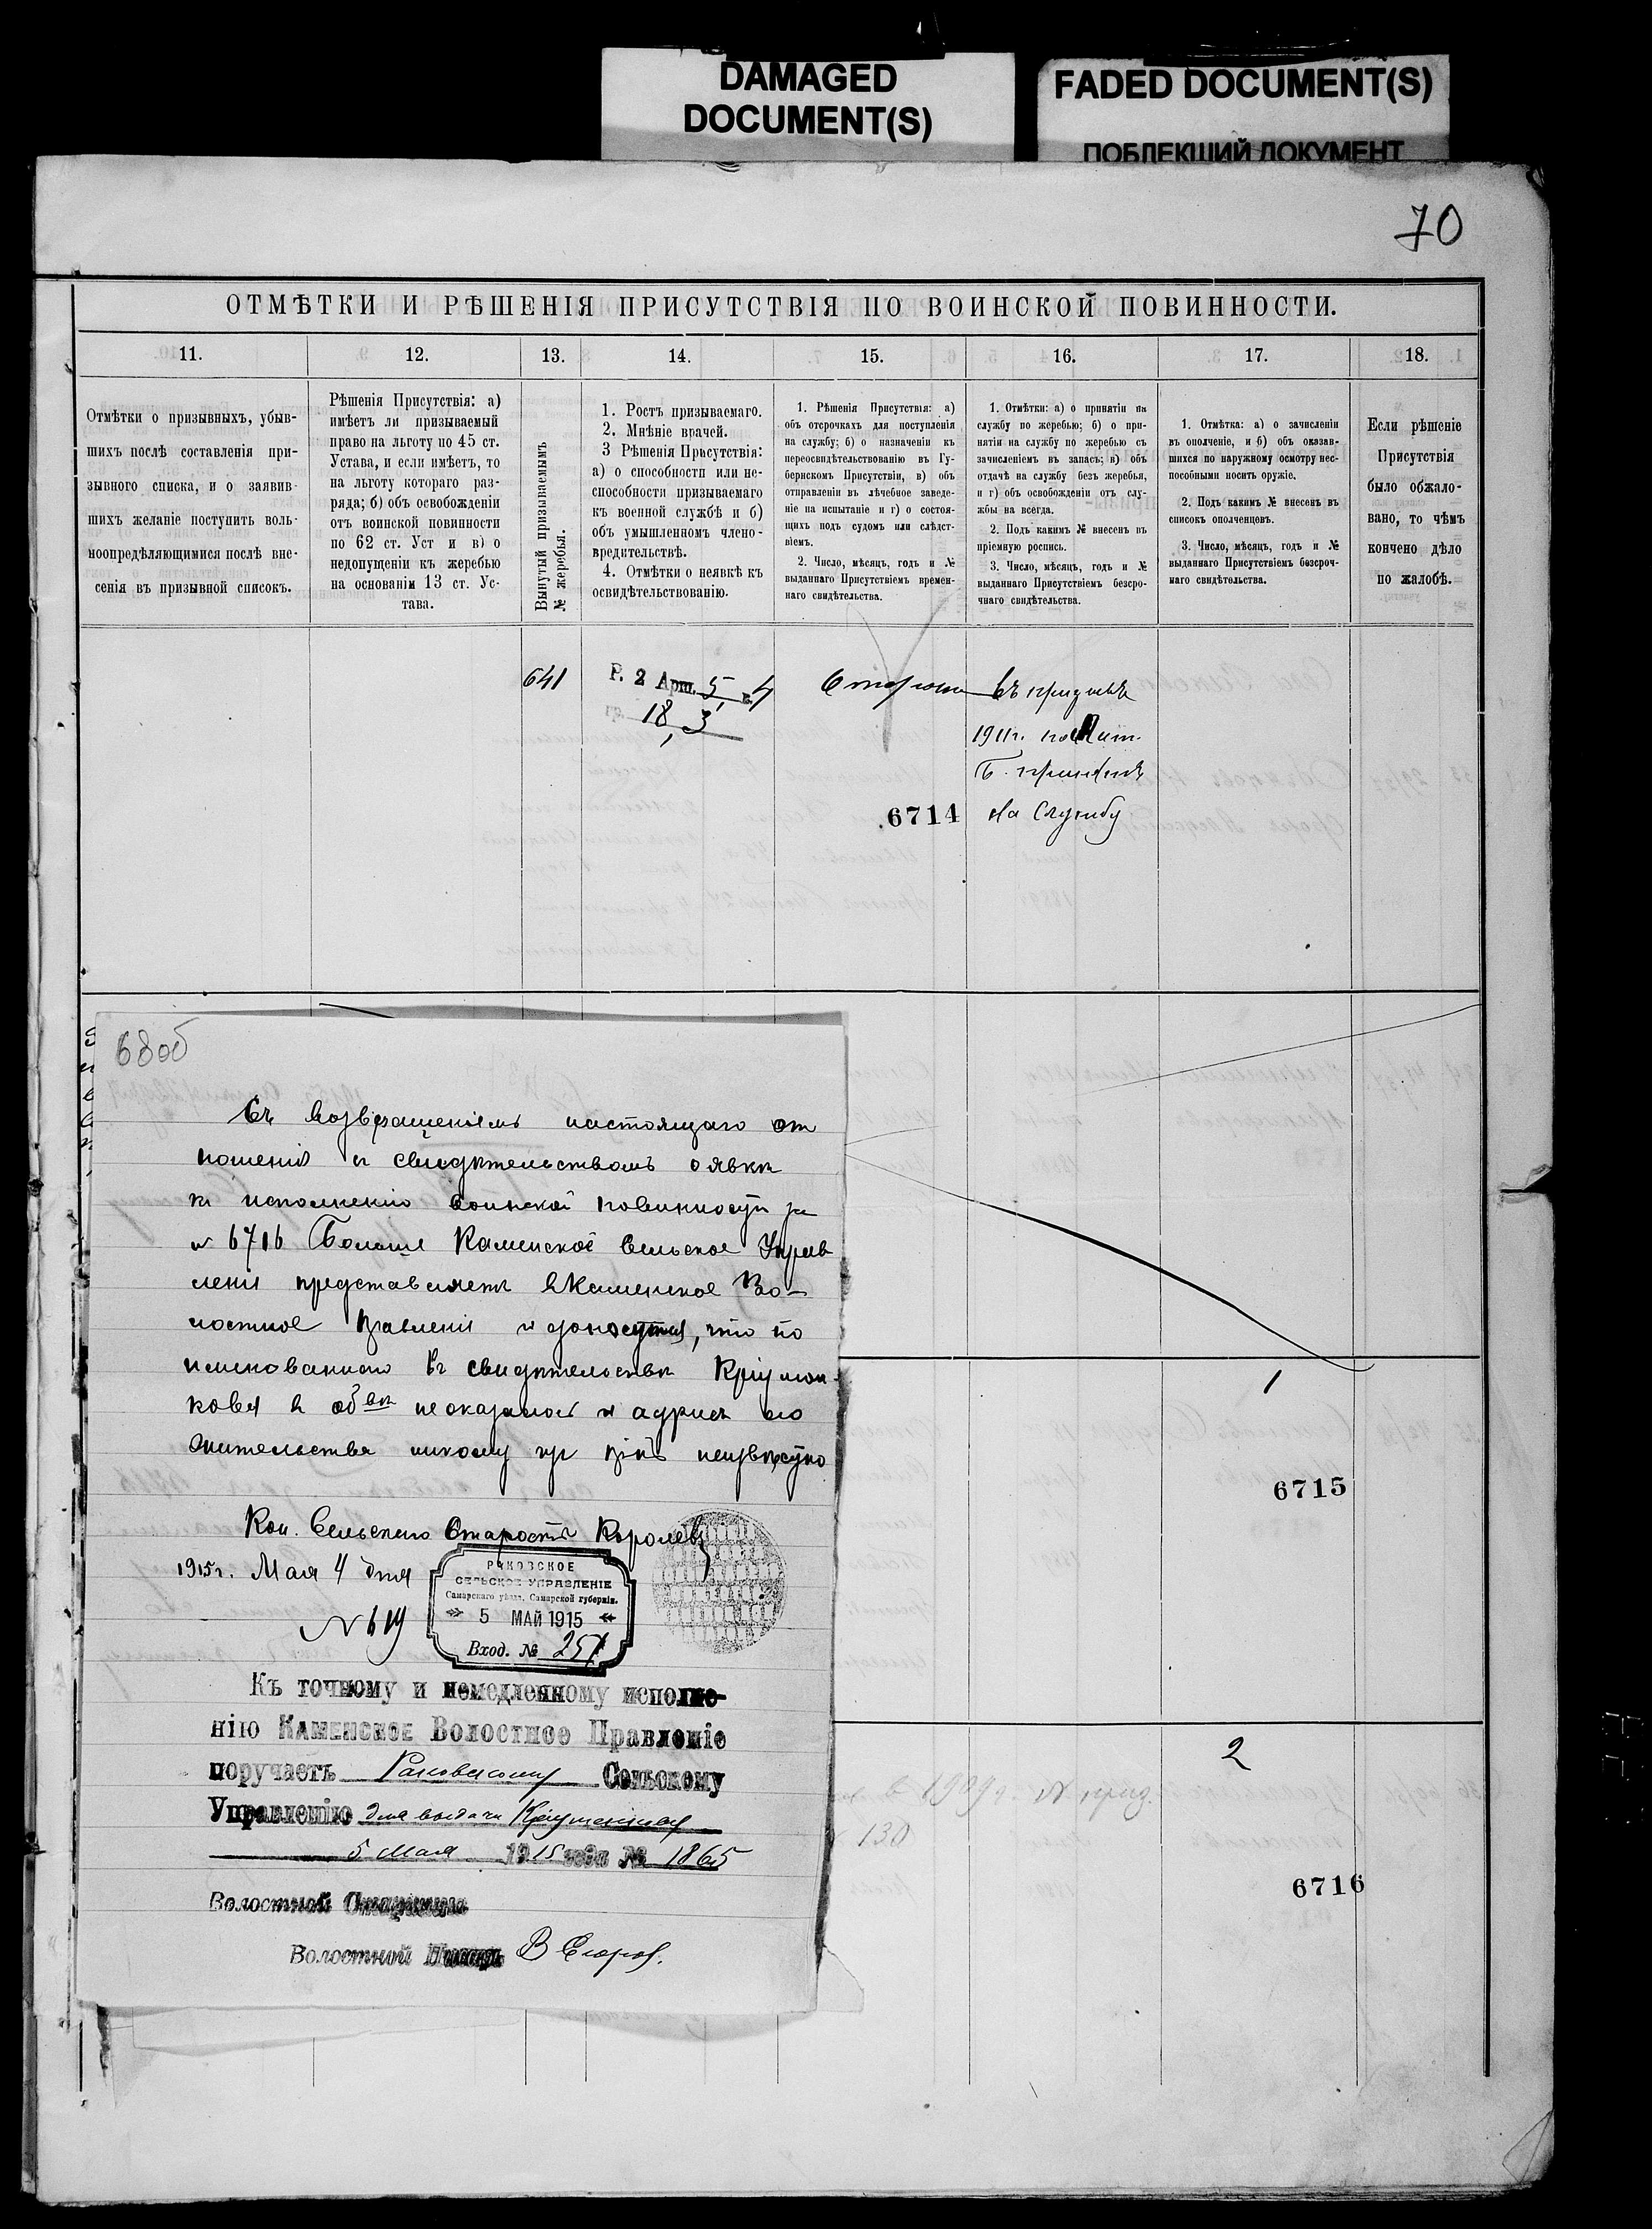 DAMAGED
DOCUMENT(S)
FADED DOCUMENT(S)
ПОБЛЕКШИЙ ДОКУМЕНТ
70
ОТМѢТКИ И РѢШЕНІЯ ПРИСУТСТВІЯ ПО ВОИНСКОЙ ПОВИННОСТИ.
11.
12.
13.
14.
15.
16.
17.
18.
Отмѣтки о призывныхъ, убыв-
шихъ послѣ составленія при-
зывного списка, и о заявив-
шихъ желаніе поступить воль-
ноопредѣляющимися послѣ вне-
сенія въ призывной списокъ.
Рѣшенія Присутствія: а)
имѣетъ ли призываемый
право на льготу по 45 ст.
Устава, и если имѣетъ, то
на льготу котораго раз-
ряда; б) объ освобожденіи
отъ воинской повинности
по 62 ст. Уст и в) о
недопущеніи къ жеребью
на основаніи 13 ст. Ус-
тава.
Вынутый призываемымъ
№ жеребья.
1. Ростъ призываемаго.
2. Мнѣніе врачей.
3 Рѣшенія Присутствія:
а) о способности или не-
способности призываемаго
къ военной службѣ и б)
объ умышленномъ члено-
вредительствѣ.
4. Отмѣтки о неявкѣ къ
освидѣтельствованію.
1. Рѣшенія Присутствія: а)
объ отсрочкахъ для поступленія
на службу; б) о назначеніи къ
переосвидѣтельствованію въ Гу-
бернскомъ Присутствіи, в) объ
отправленіи въ лѣчебное заведе-
ніе на испытаніе и г) о состоя-
щихъ подъ судомъ или слѣдст-
віемъ.
2. Число, мѣсяцъ, годъ и №
выданнаго Присутствіемъ времен-
наго свидѣтельства.
1. Отмѣтки: а) о принятіи на
службу по жеребью; б) о при-
нятіи на службу по жеребью съ
зачисленіемъ въ запасъ; в) объ
отдачѣ на службу безъ жеребья,
и г) объ освобожденіи отъ слу-
жбы на всегда.
2. Подъ какимъ № внесенъ въ
пріемную роспись.
3. Число, мѣсяцъ, годъ и №
выданнаго Присутствіемъ безсро-
чнаго свидѣтельства.
1. Отмѣтка: а) о зачисленіи
въ ополченіе, и б) объ оказав-
шихся по наружному осмотру нес-
пособными носить оружіе.
2. Подъ какимъ № внесенъ въ
списокъ ополченцовъ.
3. Число, мѣсяцъ, годъ и №
выданнаго Присутствіемъ безсроч-
наго свидѣтельства.
Если рѣшеніе
Присутствія
было обжало-
вано, то чѣмъ
кончено дѣло
по жалобѣ.
641
Р. 2 Арш. 5 в. 4
гр. 18, 3
въ призывѣ
1911г. по Лит.
Б. принятъ
на службу
6714
68об
Съ возвращеніемъ настоящаго от
ношенія и свидѣтельствомъ о явкѣ
къ исполненію воинской повинности за
№ 6716 Больше Каменское Сельское Управ
леніе представляетъ въ Каменское Во-
лостное Правленіе и доноситъ, что по
именованнаго въ свидѣтельствѣ
въ об-вѣ не оказалось и адресъ его
жительства никому
неизвѣстно
Кан. Сельскаго Старосты Королевъ
1915г. Мая 4 дня
№ 619
РАКОВСКОЕ
СЕЛЬСКОЕ УПРАВЛЕНІЕ
Самарскаго уѣзда, Самарской губерніи.
5 МАЙ 1915
Вход. № 257
Къ точному и немедленному исполне-
нію Каменское Волостное Правленіе
поручаетъ Раковскому Сельскому
Управленію для выдачи
5 Мая 1915 года № 1865
Волостной Старшина
Волостной Писарь В Егоров.
1
6715
2
в 1909 г.
130
6716